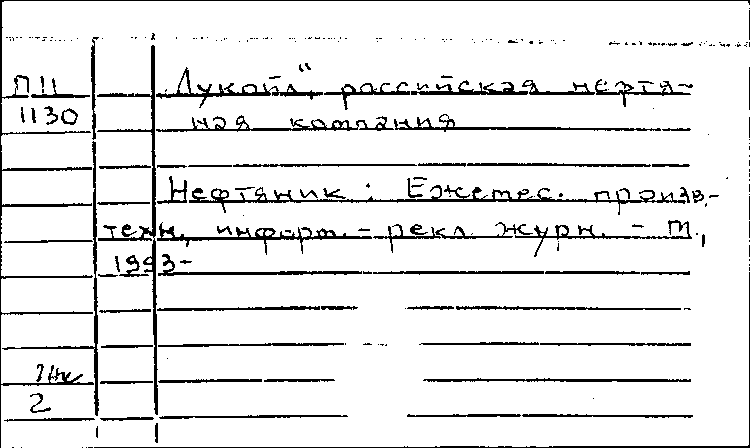 П11 Лукойл", российская нефтя-
1130 ная компания
Нефтяник: Ежемес. произв.-
техн. информ.-рекл. журн. - М.,
1993-
2